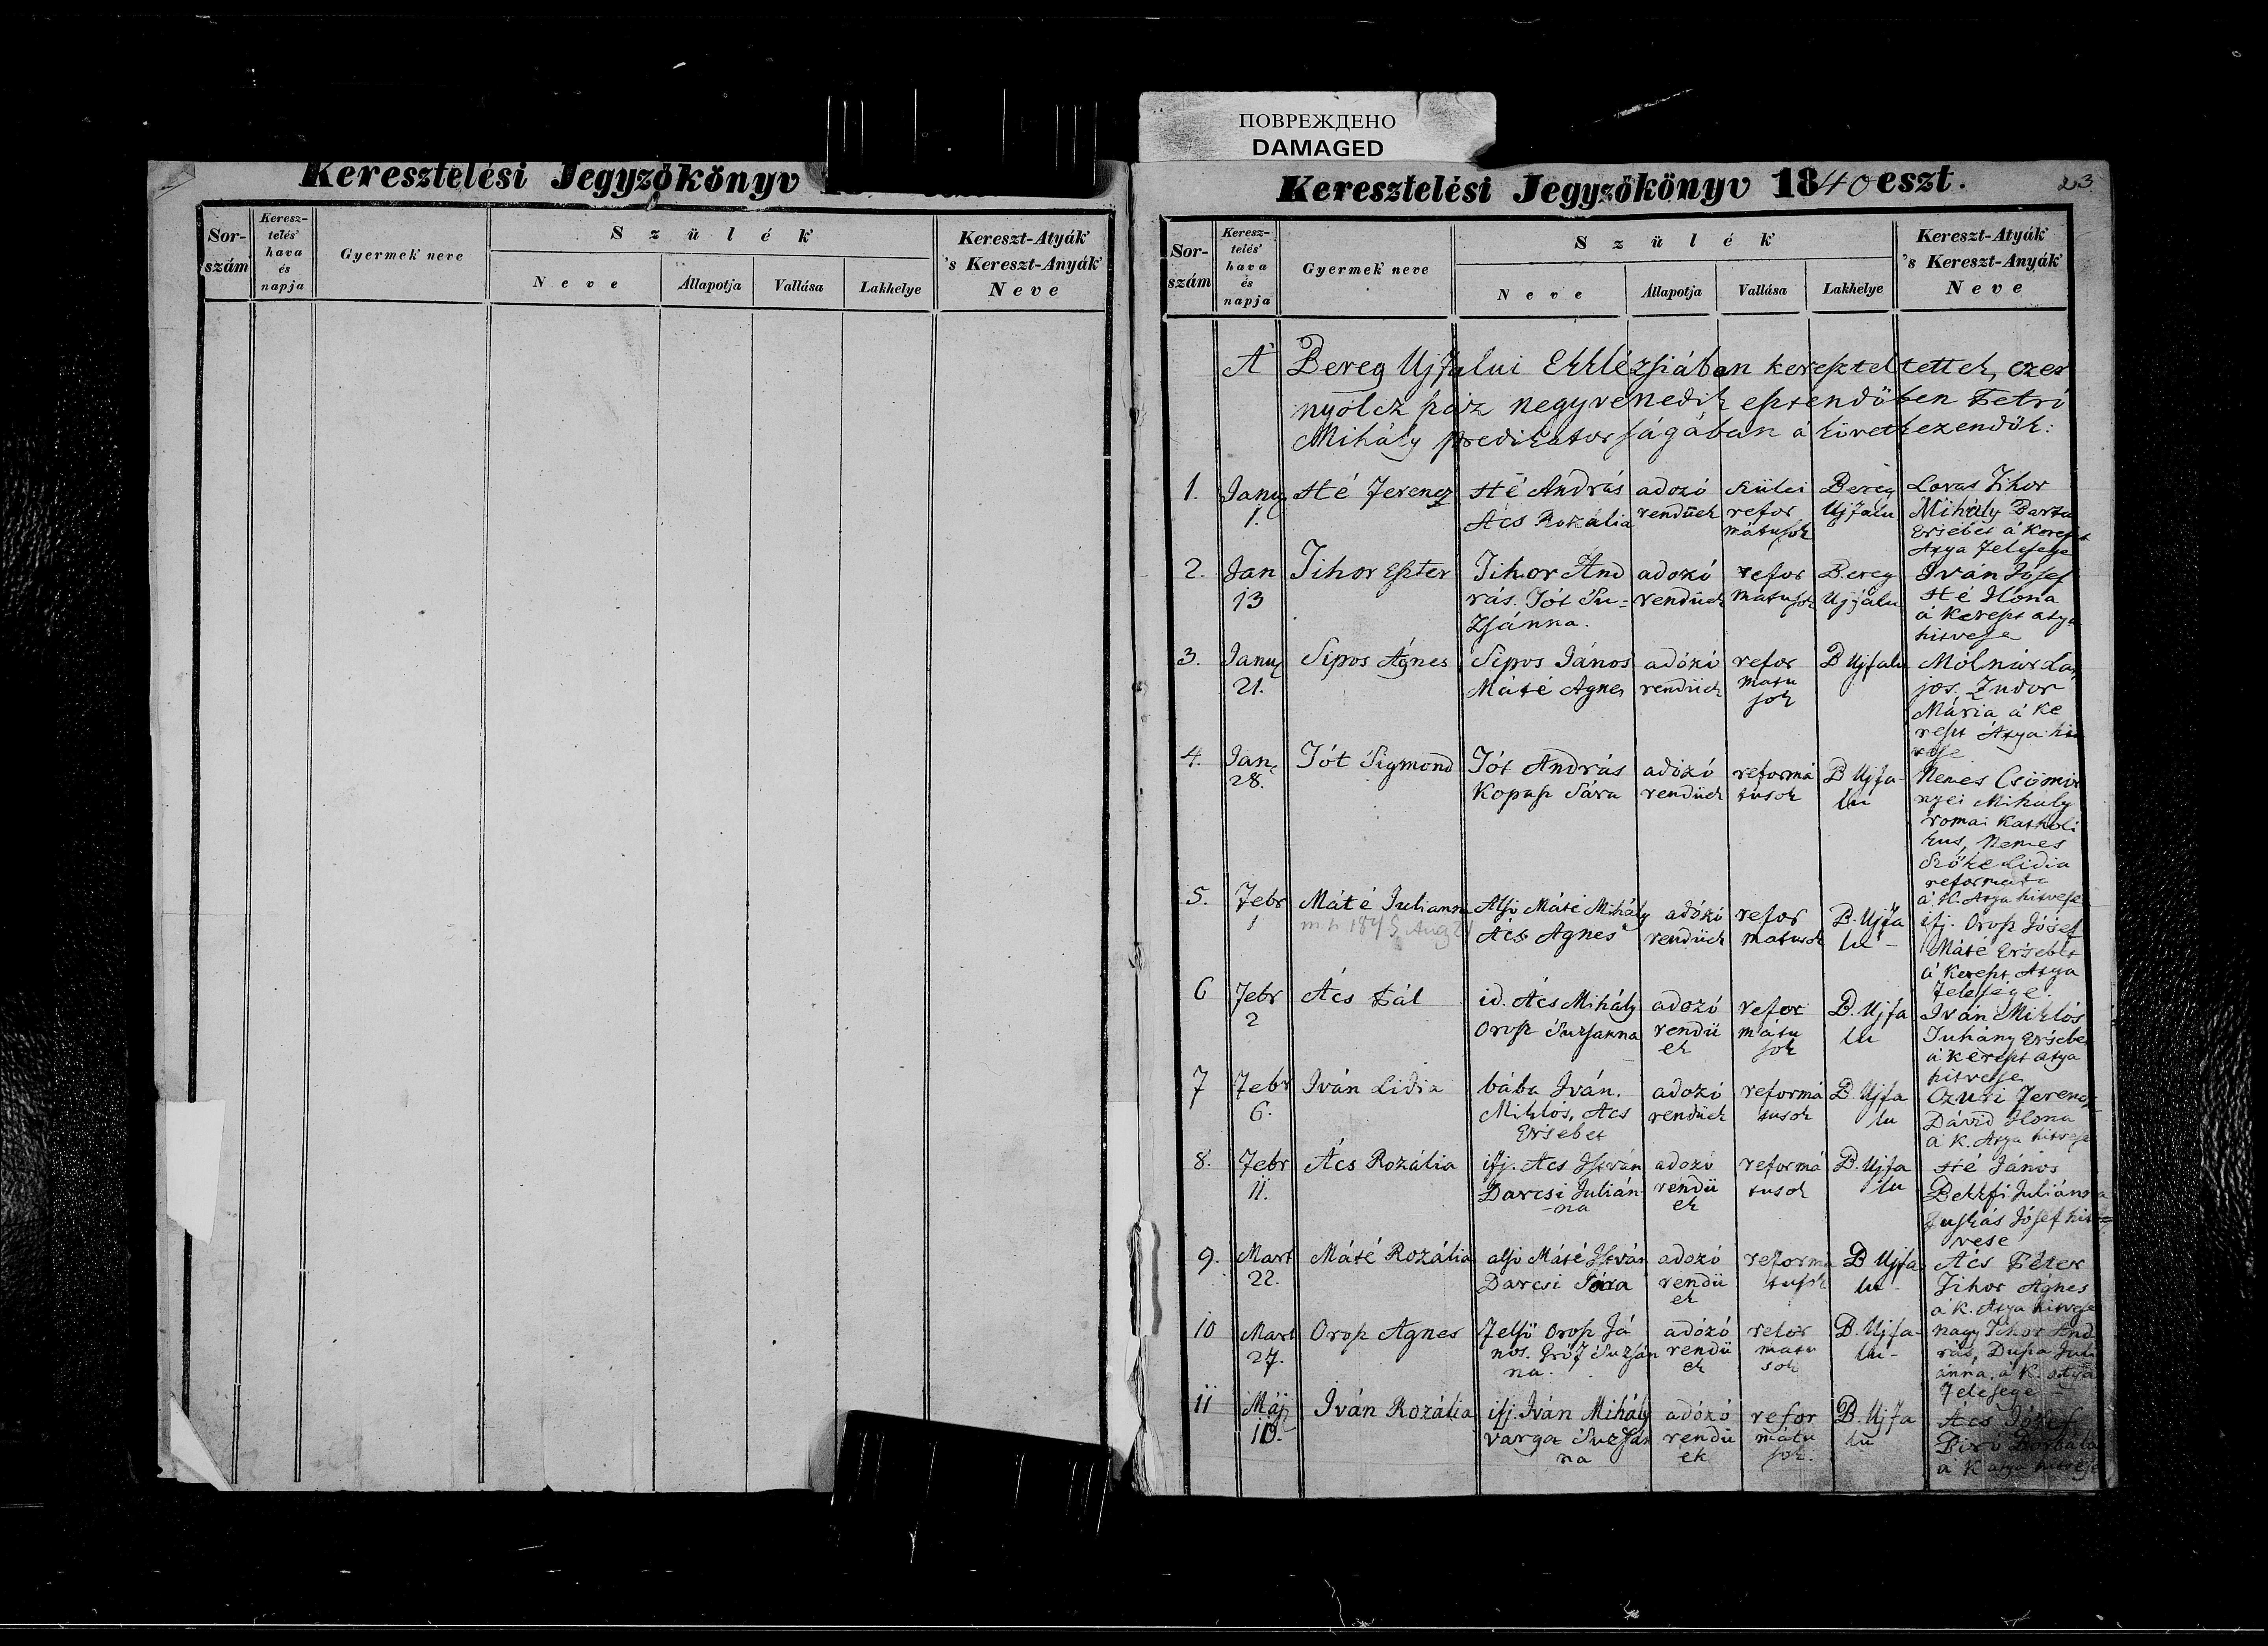 ПОВРЕЖДЕНО
DAMAGED
Keresztelési Jegyzőkönyv
Sor-
szám
Keresz-
telés'
hava
és
napja
Gyermek' neve
Szülék'
Neve
Állapotja
Vallása
Lakhelye
Kereszt-Atyák'
's Kereszt-Anyák'
Neve
Keresztelési Jegyzőkönyv 1840 eszt.
23
Sor-
szám
Keresz-
telés'
hava
és
napja
Gyermek' neve
Szülék'
Neve
Állapotja
Vallása
Lakhelye
Kereszt-Atyák'
's Kereszt-Anyák'
Neve
A' Bereg Ujfalui Ekklézsiában kereszteltettek, ezer
nyolcz száz negyvenedik esztendőben Petró
Mihály predikatorságában a' következendők:
1. Janu 1. Hé Ferencz
Hé András
Ács Rozália
adozó
rendüek
szülei
refor
mátusok
Bereg
Ujfalu
Lovas Tihor
Mihály Barta
Ersebet a' Kereszt
Atya felesége
2. Jan 13 Tihor Eszter
Tihor And
rás. Tót Su=
zsánna.
adozó
rendüek
refor
matusok
Bereg
Ujfalu
Iván Jósef
Hé Ilona
a' Kereszt atya
hitvese
3. Janu 21. Sipos Ágnes
Sipos János
Máté Agnes
adózó
rendüek
refor
matu
sok
B Ujfalu
Molnár La
jos, Indor
Mária a' Ke
reszt Atya hit
vese
4. Jan 28. Tót Sigmond
Tót András
Kopasz Sára
adózó
rendüek
reformá
tusok
B Ujfa-
lu
Nemes Csömör
nyei Mihály
romai Katholi
kus, Nemes
Szőke Lidia
reformata
a' K. Atya hitvese
5. Febr 1 Máté Julianna
Alsó Máté Mihály
Ács Agnes
adózó
rendüek
refor
matusok
B. Ujfa
lu -
ifj. Orosz Jósef
Máté Ersebet
a' Kereszt Atya
felesége.
6 Febr 2 Ács Pál
id. Ács Mihály
Orosz Susanna
adozó
rendü
ek
refor
mátu
sok
B. Ujfa
lu
Iván Miklós
Juhány Ersebet
a' kereszt atya
hitvese
7 Febr 6. Iván Lidia
bába Iván.
Miklós, Ács
Ersebet
adozó
rendüek
reformá
tusok
B. Ujfa
lu
Czuri Ferencz
Dávid Ilona
a' K. Atya hitvese
8. Febr 11. Ács Rozália
ifj. Ács István
Darcsi Julián-
-na
adozó
rendü
ek
reformá
tusok
B. Ujfa
lu
Hé János
Bekkfi Juliánna
Juhás Jósef hit=
vese
9. Mart 22. Máté Rozália
alsó Máté István
Darcsi Sára
adozó
rendü
ek
reformá
tusok
B Ujfa
lu -
Ács Péter
Tihor Agnes
a' K. Atya hitvese
10 Mart 27. Orosz Agnes
Felső Orosz Já
nos. Gróf Suzsán
na.
adózó
rendü
ek
refor
matu
sok
B. Ujfa-
lu -
nagy Tihor And
rás, Dupa Juli
ánna, a' K. atya
felesége
11 Máj 10. Iván Rozália
ifj. Iván Mihály
Varga Suzsán
na
adózó
rendü
ek
refor
mátu
sok.
B. Ujfa
lu
Ács Jósef
Biró Borbála
a' K atya hitvese